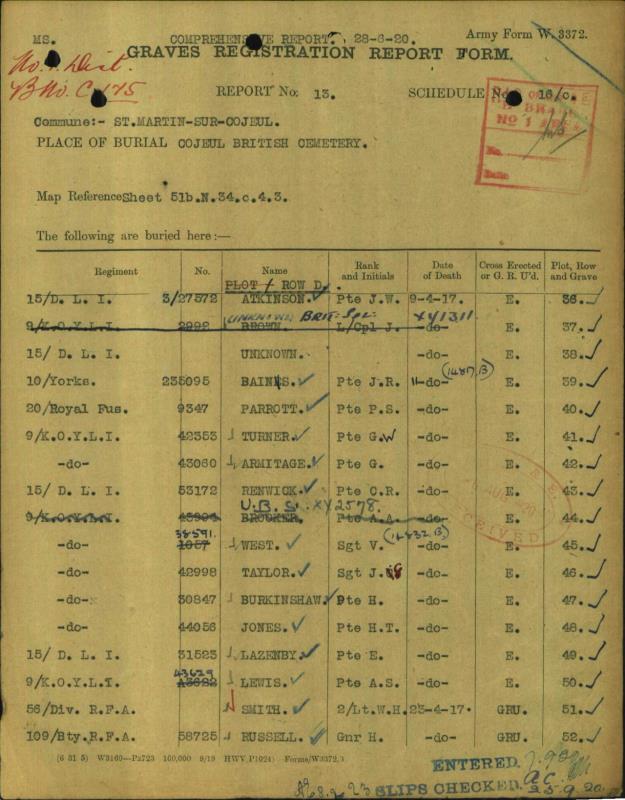 MS. COMPREHENSIVE REPORT. 28-6-20. Army Form W. 3372.
GRAVES REGISTRATION REPORT FORM.
No. 1 Dist.
B No. C 175
REPORT No: 13. SCHEDULE No. 16/c.
No 1 AREA
No.
Date
Commune:- ST.MARTIN-SUR-COJEUL.
PLACE OF BURIAL COJEUL BRITISH CEMETERY.
Map Reference Sheet 51b.N.34.c.4.3.
The following are buried here:—
Regiment No. Name Rank and Initials Date of Death Cross Erected or G. R. U'd. Plot, Row and Grave
PLOT / ROW D.
15/D. L. I. 3/27572 ATKINSON. Pte J.W. 9-4-17. E. 36.
UNKNOWN BRIT. Sol. XY1311
9/K.O.Y.L.I. 2992 BROWN. L/Cpl J. -do- E. 37.
15/ D. L. I. UNKNOWN. -do- E. 38.
(14817.B)
10/Yorks. 235095 BAINES. Pte J.R. 11-do- E. 39.
20/Royal Fus. 9347 PARROTT. Pte P.S. -do- E. 40.
9/K.O.Y.L.I. 42353 TURNER. Pte G.W -do- E. 41.
-do- 43060 ARMITAGE. Pte G. -do- E. 42.
15/ D. L. I. 53172 RENWICK. Pte C.R. -do- E. 43.
U.B.S. XY2578.
9/K.O.Y.L.I. BROOKER. Pte A.A. -do- E. 44.
38591. (14832 B)
-do- 1057 WEST. Sgt V. -do- E. 45.
-do- 42998 TAYLOR. Sgt J. -do- E. 46.
-do- 30847 BURKINSHAW. Pte H. -do- E. 47.
-do- 44056 JONES. Pte H.T. -do- E. 48.
15/ D. L. I. 31523 LAZENBY. Pte E. -do- E. 49.
43629
9/K.O.Y.L.I. LEWIS. Pte A.S. -do- E. 50.
56/Div. R.F.A. SMITH. 2/Lt.W.H. 23-4-17. GRU. 51.
109/Bty.R.F.A. 58725 RUSSELL. Gnr H. -do- GRU. 52.
(6 31 5) W3160—P2723 100,000 9/19 HWV(P1024) Forms/W3372/1
ENTERED.
SLIPS CHECKED.